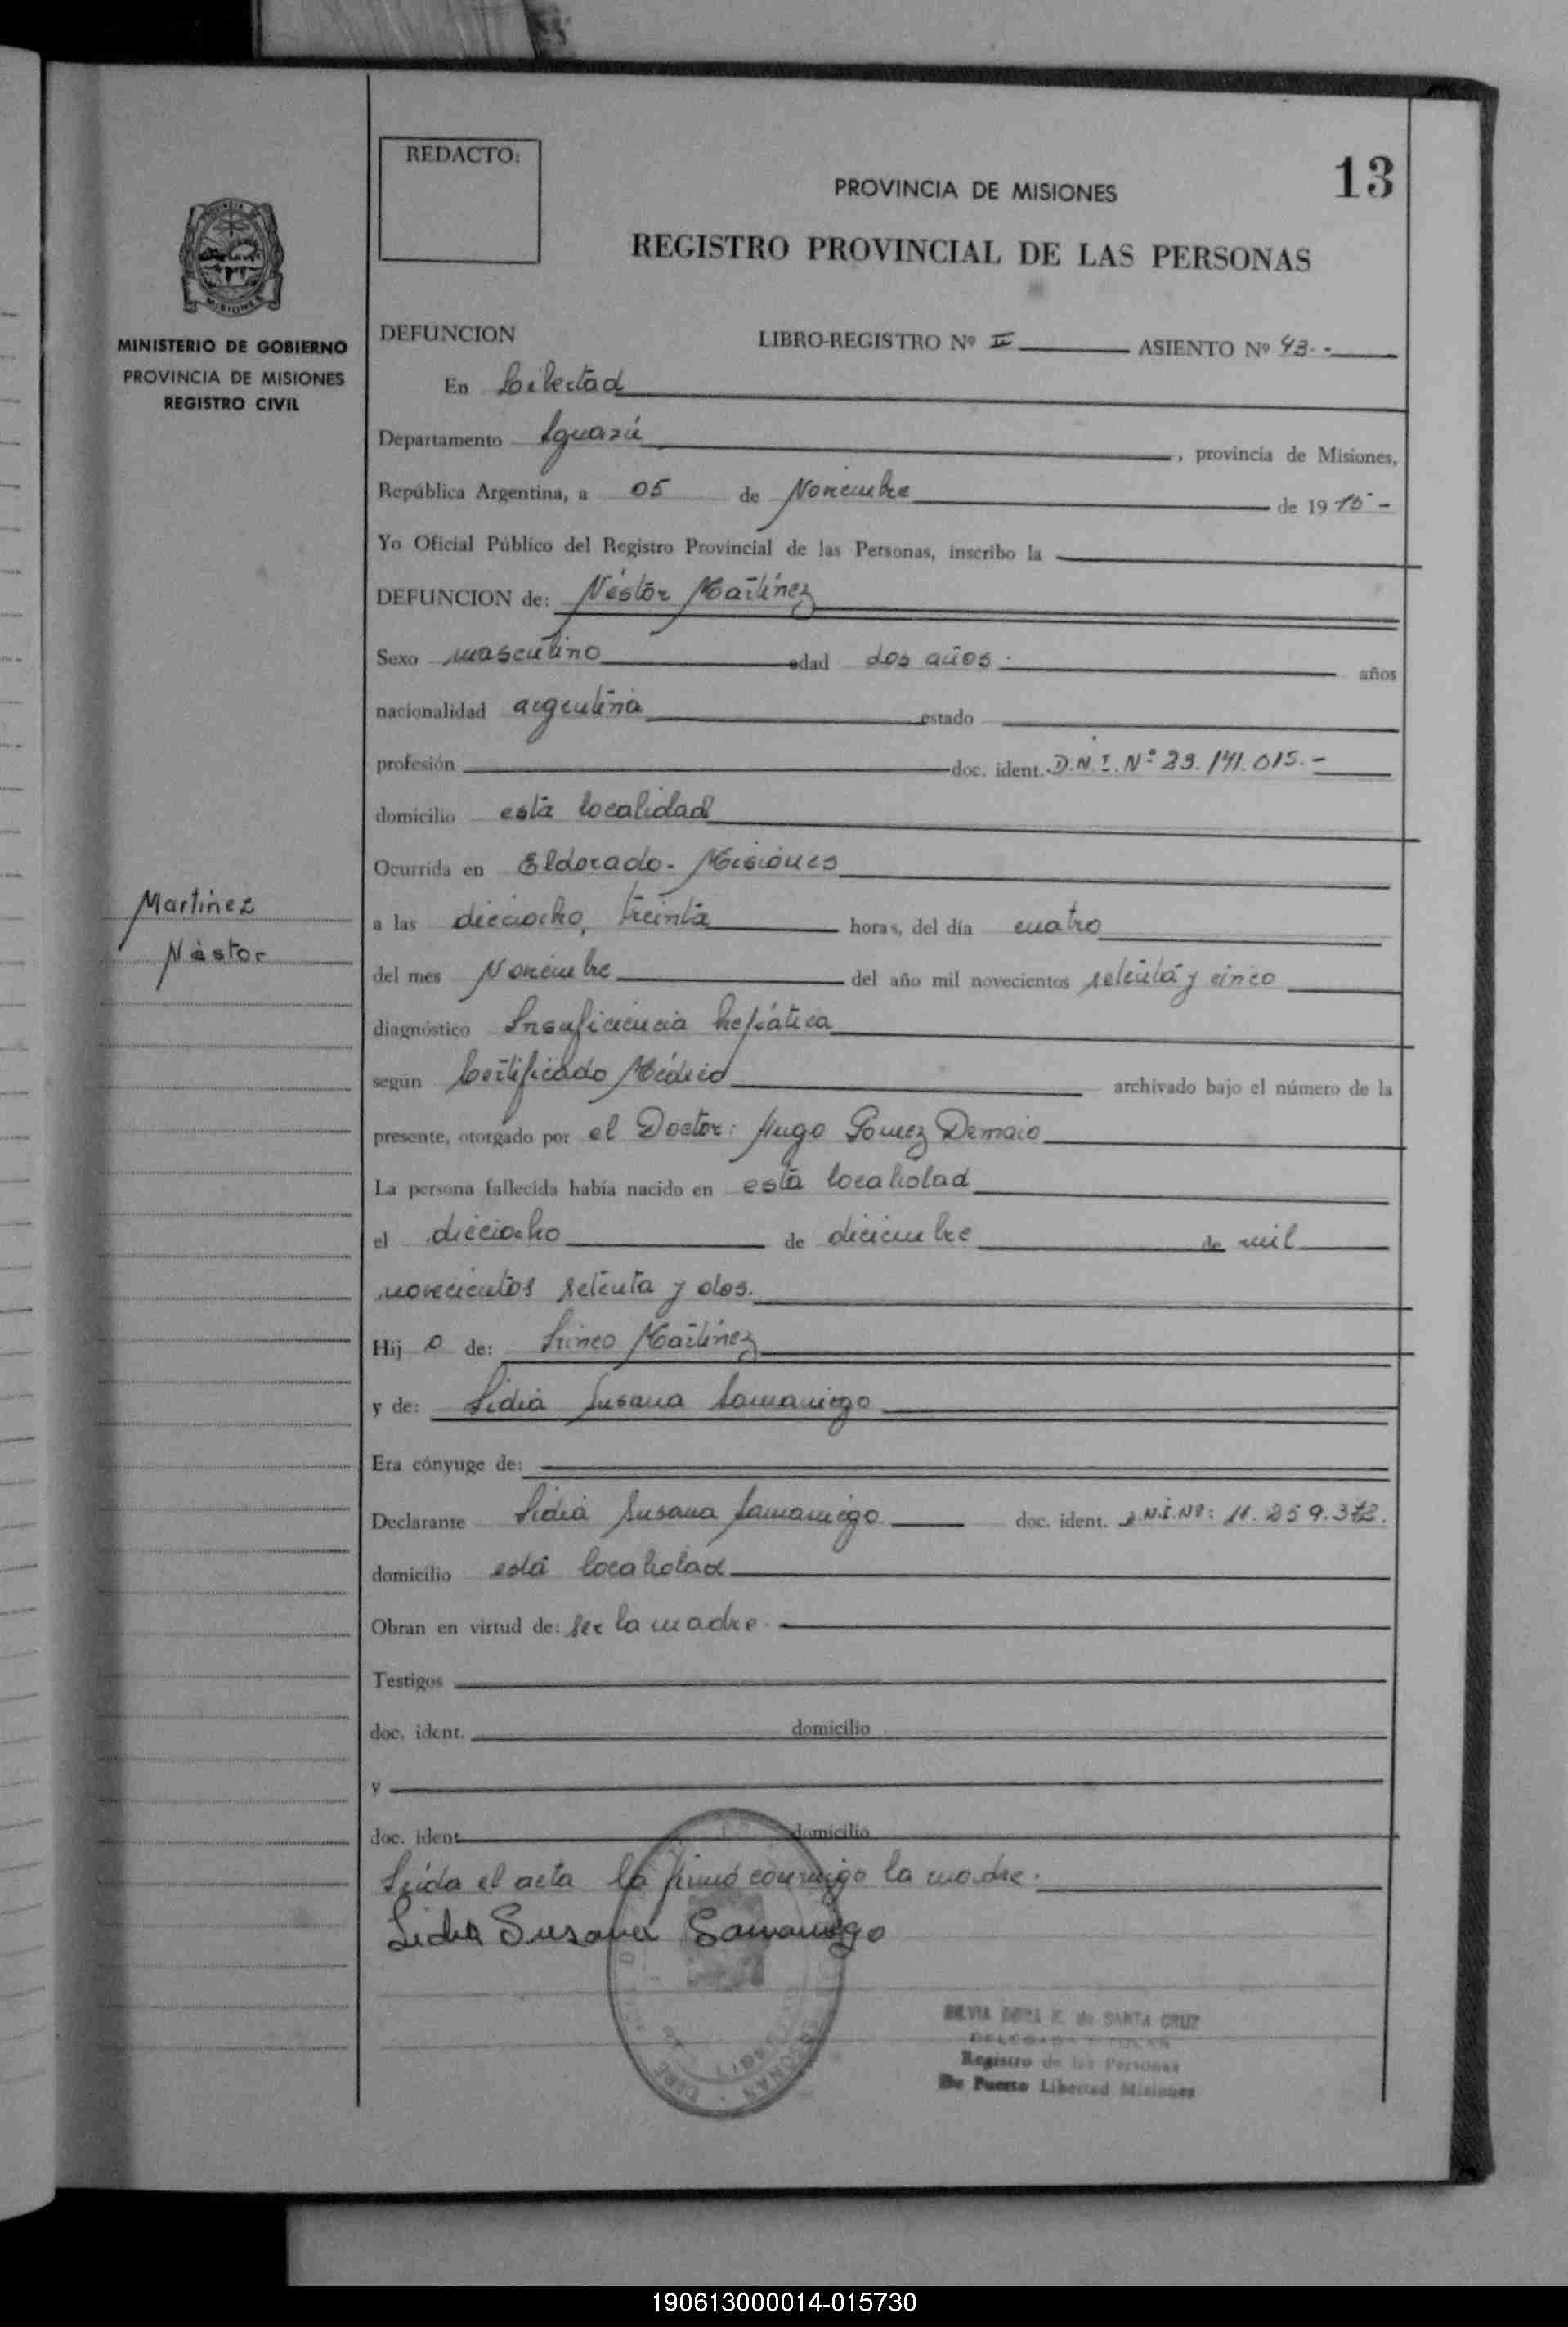 13
REDACTO:
PROVINCIA DE MISIONES
REGISTRO PROVINCIAL DE LAS PERSONAS
PROVINCIA DE
MISIONES
MINISTERIO DE GOBIERNO
PROVINCIA DE MISIONES
REGISTRO CIVIL
DEFUNCION LIBRO-REGISTRO Nº II ASIENTO Nº 43.-
En Libertad
Departamento Iguazú , provincia de Misiones,
República Argentina, a 05 de Noviembre de 19 75-
Yo Oficial Público del Registro Provincial de las Personas, inscribo la
DEFUNCION de: Néstor Martínez
Sexo masculino edad dos años. años
nacionalidad argentina estado
profesión doc. ident. D.N.I. Nº 23.141.015.-
domicilio esta localidad
Ocurrida en Eldorado- Misiones
Martinez
Néstor
a las dieciocho, treinta horas, del día cuatro
del mes Noviembre del año mil novecientos setenta y cinco
diagnóstico Insuficiencia hepática
según Certificado Médico archivado bajo el número de la
presente, otorgado por el Doctor: Hugo Gomez Demaio
La persona fallecida había nacido en esta localidad
el dieciocho de diciembre de mil
novecientos setenta y dos.
Hij o de: Lineo Martínez
y de: Lidia Susana Samaniego
Era cónyuge de:
Declarante Lidia Susana Samaniego doc. ident. D.N.I. Nº: 11.259.372.
domicilio esta localidad
Obran en virtud de: ser la madre.
Testigos
doc. ident. domicilio
y
doc. ident. domicilio
Leida el acta la firmó conmigo la madre.
Lidia Susana Samaniego
SILVIA DORA E. de SANTA CRUZ
DELEGADA TITULAR
Registro de las Personas
De Puerto Libertad Misiones
190613000014-015730